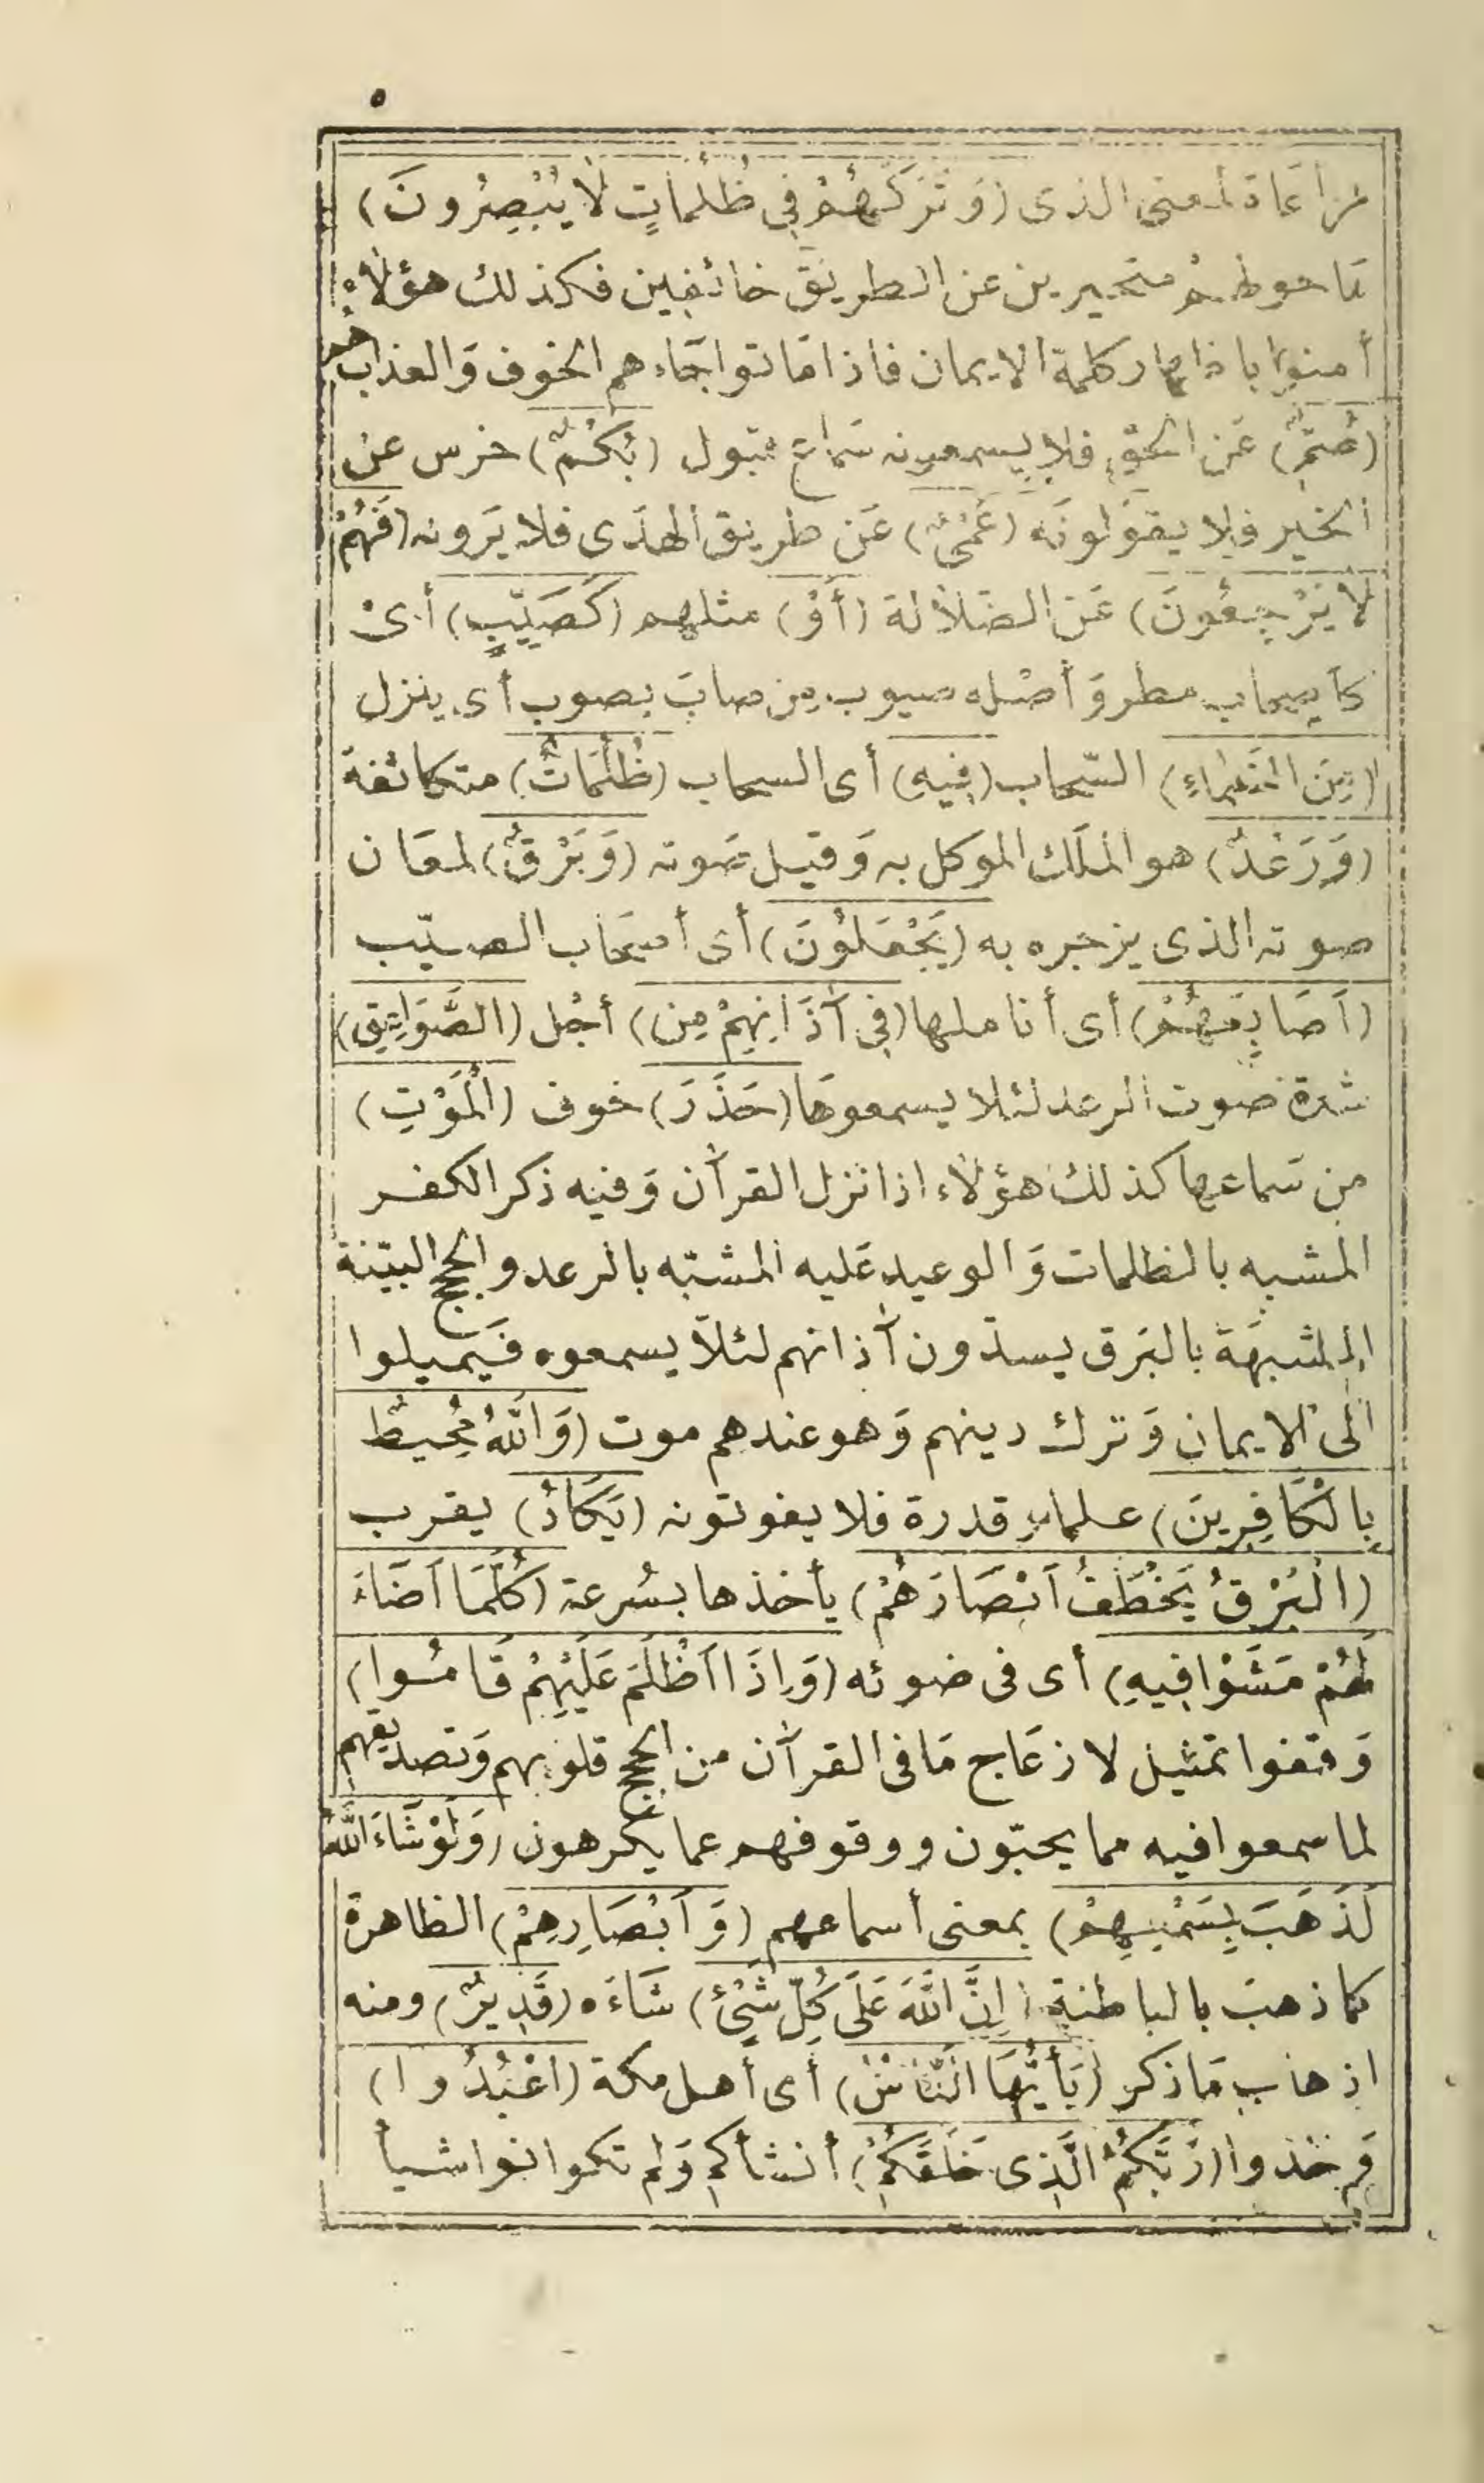 ٥
مراعاة لمعنى الذى (وَتَرَكَهُمْ فِى ظُلُمَاتٍ لَا يُبْصِرُونَ)
مَا حولهم متحيرين عن الطريق خائفين فكذلك هؤلاء
أمنوا باظهار كلمة الايمان فاذا مَاتوا جَاءهم الخوف وَالعذاب هم
(صُمٌّ) عَن الحقّ فلا يسمعونه سَماع قبول (بُكْمٌ) خرس عن
الخير فلا يقولونَه (عُمْىٌ) عَن طريق الهدَى فلا يَرونه (فَهُمْ
لَا يَرْجِعُونَ) عَن الضلالة (أَوْ) مثلهم (كَصَيِّبٍ) أىْ
كأصحاب مطر وَأصْله صيوب من صابَ يصوب أى ينزل
(مِنَ السَّمَاءِ) السّحاب (فِيهِ) أى السحاب (ظُلُمَاتٌ) متكاثفة
(وَرَعْدٌ) هو الملَك الموكل به وَقيل صَوته (وَبَرْقٌ) لمعَان
صوته الذى يزجره به (يَجْعَلُونَ) أى أصحَاب الصيّب
(اَصَابِعَهُمْ) أى أناملها (فِى آذَانِهِمْ مِن) أجْل (الصَّوَاعِقِ)
شدة صَوت الرعد لئلا يسمعوهَا (حَذَرَ) خوف (الْمَوْتِ)
من سَماعها كذلك هؤلاء اذا نزل القرآن وَفيه ذكر الكفر
المشبه بالظلمات وَالوعيد عَليه المشبّه بالرعد والحجج البيّنة
المشبهَة بالبَرق يسدّون آذانهم لئلاّ يسمعوه فَيميلوا
الى الايمان وَترك دينهم وَهو عندهم موت (وَاللهُ مُحِيطٌ
بِالْكَافِرِينَ) علما وقدرة فلا يفوتونه (يَكَادُ) يقرب
(الْبَرْقُ يَخْطَفُ اَبْصَارَهُمْ) يأخذها بسُرعة (كُلَّمَا اَضَاءَ
لَهُمْ مَشَوْا فِيهِ) أى فى ضوئه (وَاِذَا اَظْلَمَ عَلَيْهِمْ قَامُوا)
وَقفوا تمثيل لازعَاج مَا فى القرآن من الحجج قلوبهم وَتصديقهم
لما سمعوا فيه مما يحبّون ووقوفهم عما يكرهون (وَلَوْ شَاءَ اللهُ
لَذَهَبَ بِسَمْعِهِمْ) بمعنى أسماعهم (وَاَبْصَارِهِمْ) الظاهرة
كما ذهبَ بالباطنة (اِنَّ اللهَ عَلَى كُلِّ شَىْءٍ) شَاءَه (قَدِيرٌ) ومنه
اذهاب مَا ذكر (يَأَيُّهَا النَّاسُ) أى أهل مكة (اعْبُدُوا)
وَحّدوا (رَبَّكُمُ الَّذِى خَلَقَكُمْ) أنشأكم وَلم تكونوا شيأ